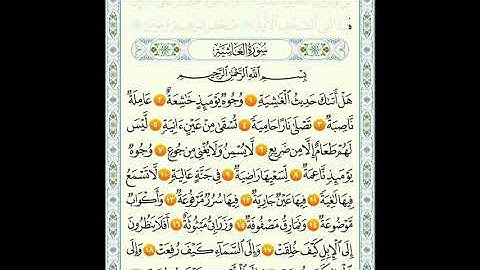 سُورَةُ الغَاشِيَةِ
بِسْمِ اللَّهِ الرَّحْمَٰنِ الرَّحِيمِ
هَلْ أَتَىٰكَ حَدِيثُ ٱلْغَٰشِيَةِ ١ وُجُوهٌ يَوْمَئِذٍ خَٰشِعَةٌ ٢ عَامِلَةٌ
نَّاصِبَةٌ ٣ تَصْلَىٰ نَارًا حَامِيَةً ٤ تُسْقَىٰ مِنْ عَيْنٍ ءَانِيَةٍ ٥ لَّيْسَ
لَهُمْ طَعَامٌ إِلَّا مِن ضَرِيعٍ ٦ لَّا يُسْمِنُ وَلَا يُغْنِى مِن جُوعٍ ٧ وُجُوهٌ
يَوْمَئِذٍ نَّاعِمَةٌ ٨ لِّسَعْيِهَا رَاضِيَةٌ ٩ فِى جَنَّةٍ عَالِيَةٍ ١٠ لَّا تَسْمَعُ
فِيهَا لَٰغِيَةً ١١ فِيهَا عَيْنٌ جَارِيَةٌ ١٢ فِيهَا سُرُرٌ مَّرْفُوعَةٌ ١٣ وَأَكْوَابٌ
مَّوْضُوعَةٌ ١٤ وَنَمَارِقُ مَصْفُوفَةٌ ١٥ وَزَرَابِىُّ مَبْثُوثَةٌ ١٦ أَفَلَا يَنظُرُونَ
إِلَى ٱلْإِبِلِ كَيْفَ خُلِقَتْ ١٧ وَإِلَى ٱلسَّمَآءِ كَيْفَ رُفِعَتْ ١٨ وَإِلَى